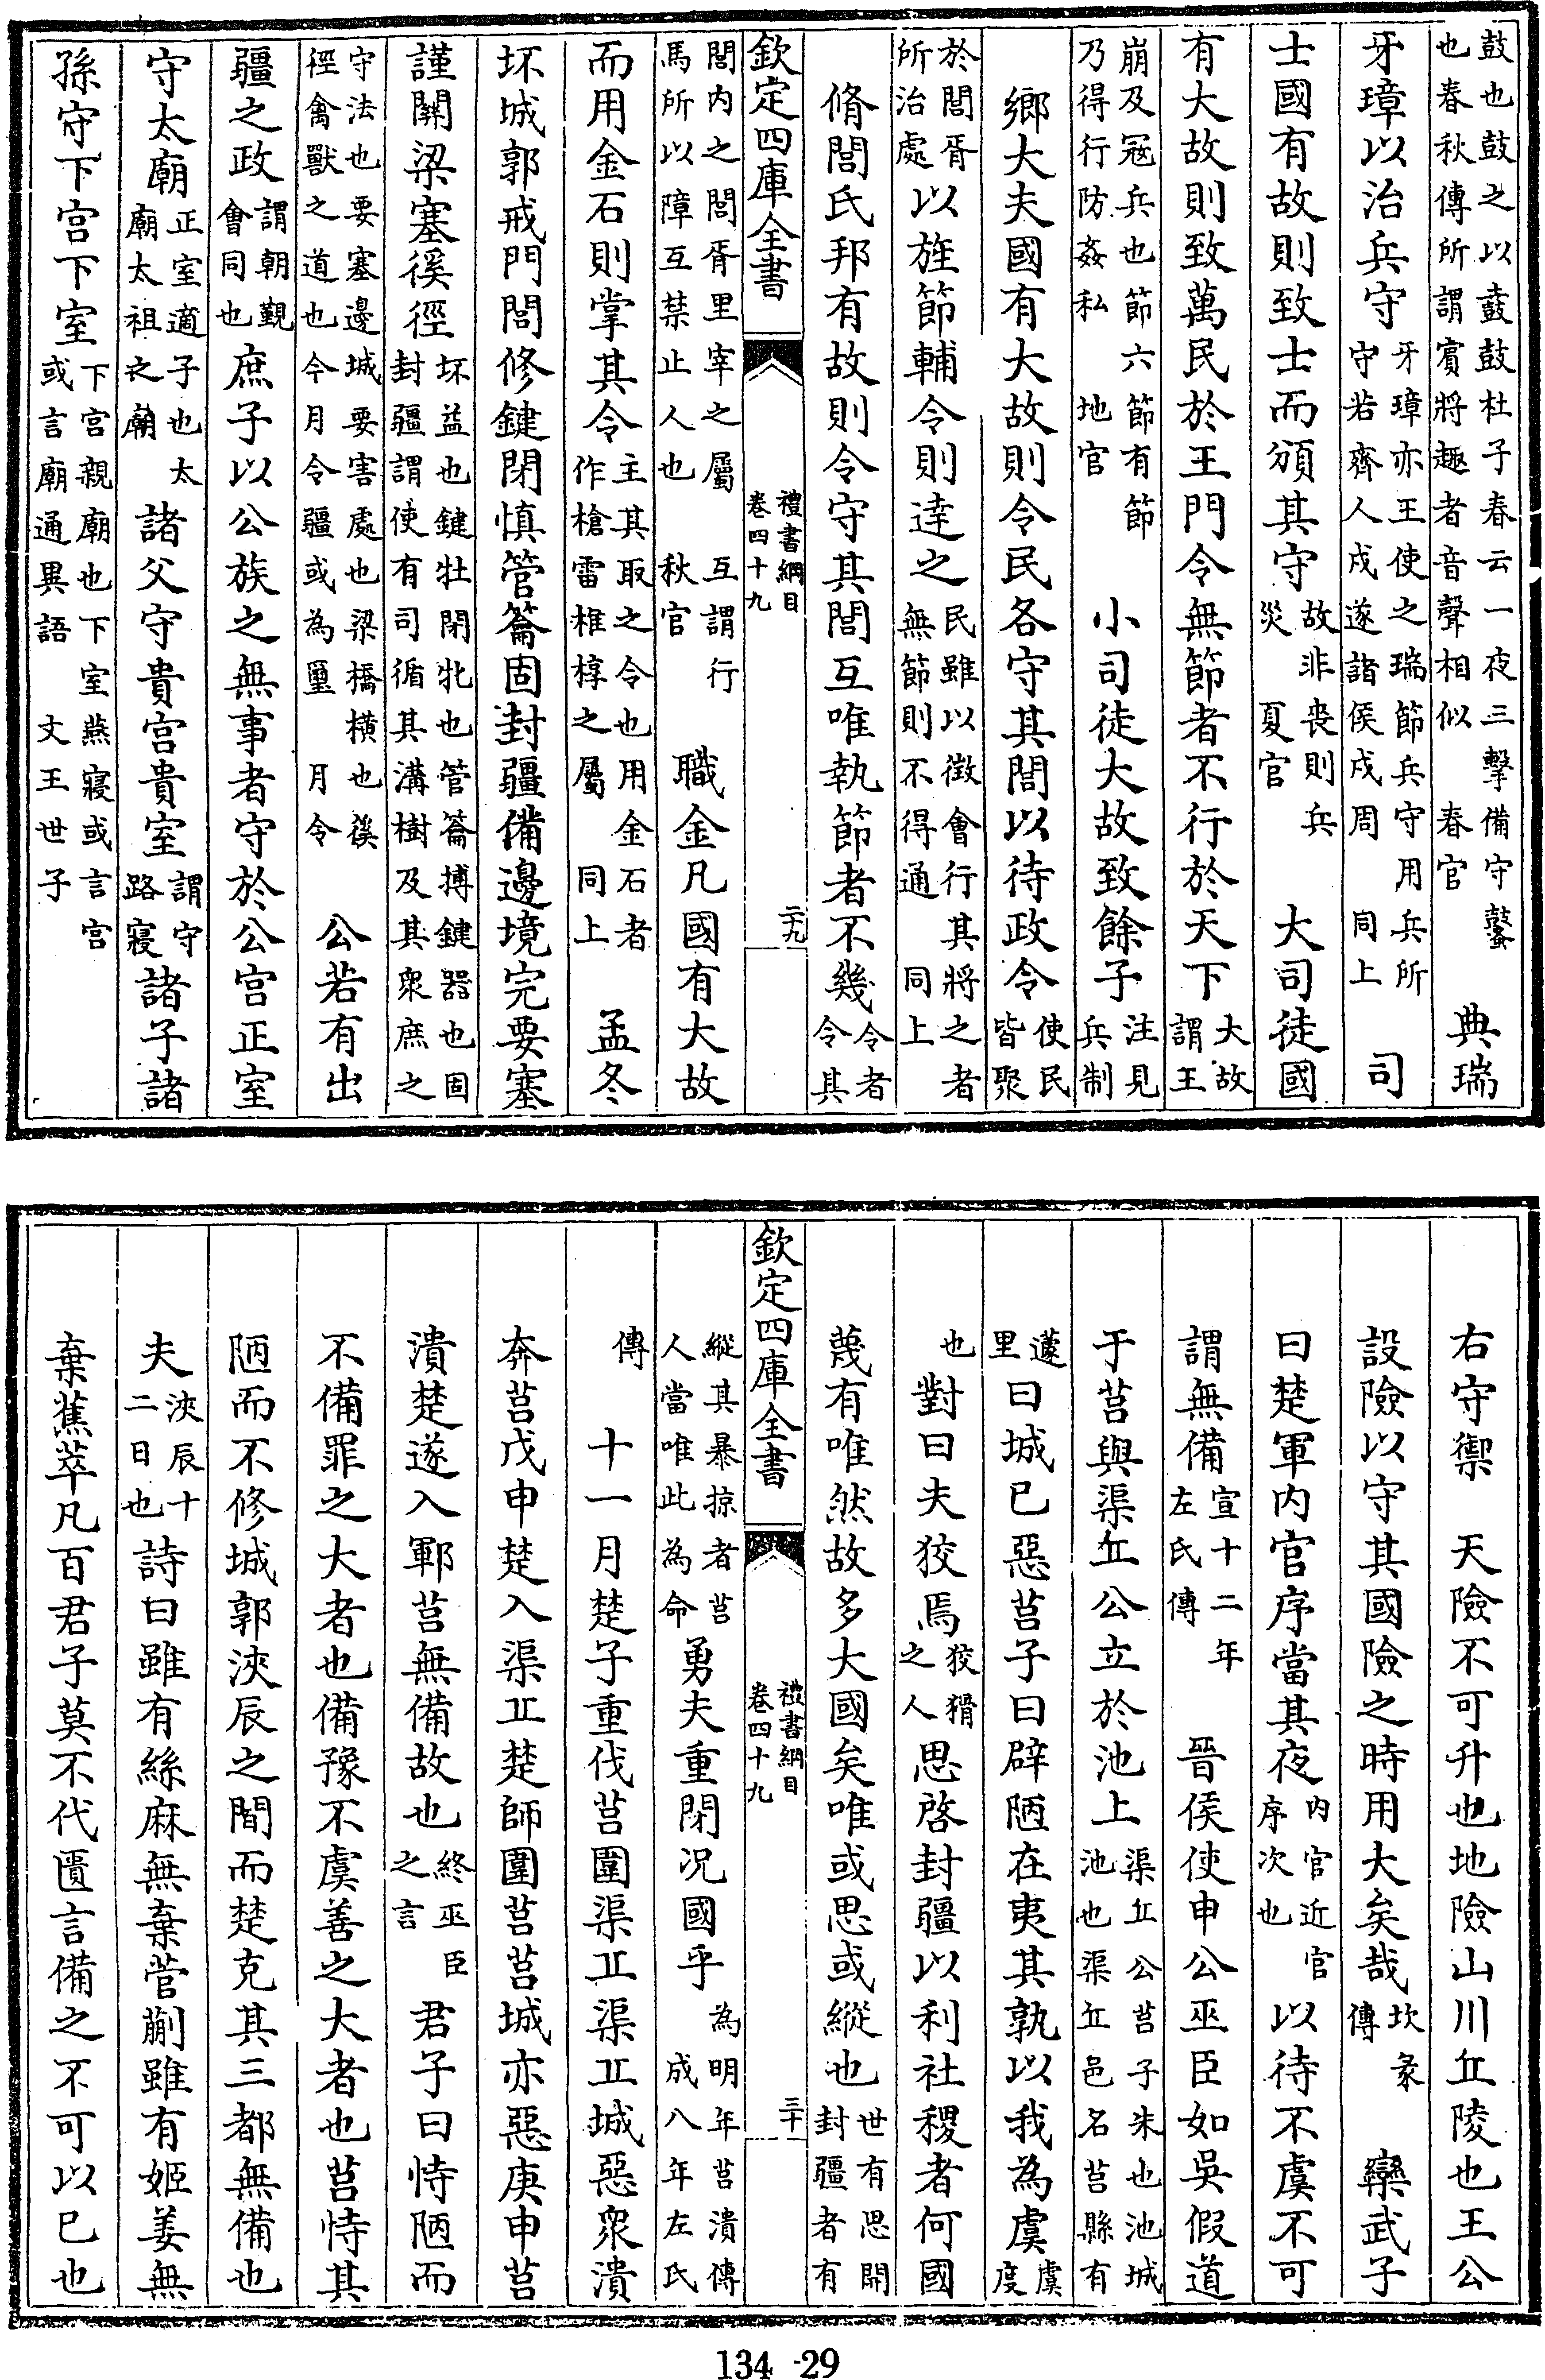 鼓也鼓之以鼖鼓杜子春云一夜三擊備守鼜也春秋傳所謂賓將趣者音聲相似 春官 典瑞
牙璋以治兵守牙璋亦王使之瑞節兵守用兵所守若齊人戍遂諸侯戍周 同上 司
士國有故則致士而頒其守故非喪則兵災 夏官 大司徒國
有大故則致萬民於王門令無節者不行於天下大故謂王
崩及冦兵也節六節有節乃得行防姦私 地官 小司徒大故致餘子注見兵制
鄉大夫國有大故則令民各守其閭以待政令使民皆聚
於閭胥所治處以旌節輔令則達之民雖以徴會行其將之者無節則不得通 同上
脩閭氏邦有故則令守其閭互唯執節者不幾令者令其
欽定四庫全書 禮書綱目 卷四十九 二十九
閭内之閭胥里宰之屬 互謂行馬所以障互禁止人也 秋官 職金凡國有大故
而用金石則掌其令主其取之令也用金石者作槍雷椎椁之屬 同上 孟冬
坏城郭戒門閭修鍵閉慎管籥固封疆備邊境完要塞
謹關梁塞徯徑坏益也鍵牡閉牝也管籥搏鍵器也固封疆謂使有司循其溝樹及其衆庶之
守法也要塞邊城要害處也梁橋横也徯徑禽獸之道也今月令疆或為璽 月令 公若有出
疆之政謂朝覲會同也庶子以公族之無事者守於公宫正室
守太廟正室適子也太廟太祖之廟諸父守貴宫貴室謂守路寢諸子諸
孫守下宫下室下宫親廟也下室燕寢或言宫或言廟通異語 文王世子
右守禦 天險不可升也地險山川丘陵也王公
設險以守其國險之時用大矣哉坎彖傳 欒武子
曰楚軍内官序當其夜内官近官序次也 以待不虞不可
謂無備宣十二年左氏傳 晉侯使申公巫臣如吳假道
于莒與渠丘公立於池上渠丘公莒子朱也池城池也渠丘邑名莒縣有
蘧里曰城已惡莒子曰辟陋在夷其孰以我為虞虞度
也對曰夫狡焉狡猾之人思啓封疆以利社稷者何國
蔑有唯然故多大國矣唯或思或縱也世有思開封疆者有
欽定四庫全書 禮書綱目 卷四十九 三十
縱其暴掠者莒人當唯此為命勇夫重閉况國乎為明年莒潰傳 成八年左氏
傳 十一月楚子重伐莒圍渠丘渠丘城惡衆潰
奔莒戊申楚入渠丘楚師圍莒莒城亦惡庚申莒
潰楚遂入鄆莒無備故也終巫臣之言 君子曰恃陋而
不備罪之大者也備豫不虞善之大者也莒恃其
陋而不修城郭浹辰之間而楚克其三都無備也
夫浹辰十二日也詩曰雖有絲麻無棄菅蒯雖有姬姜無
棄蕉萃凡百君子莫不代匱言備之不可以已也
134-29